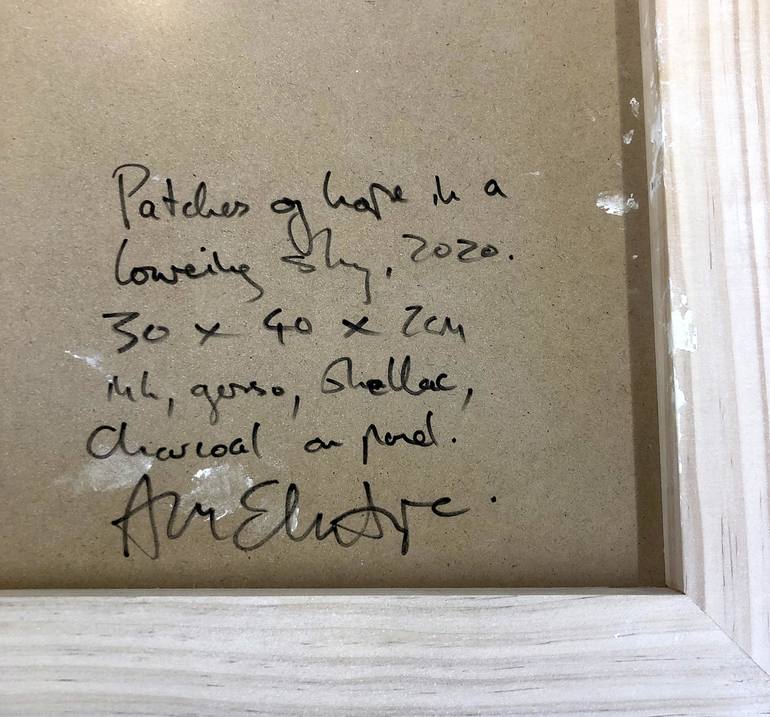 Patches of hope in a
lowering sky, 2020.
30 x 40 x 2cm
ink, gesso, Shellac,
Charcoal on panel.